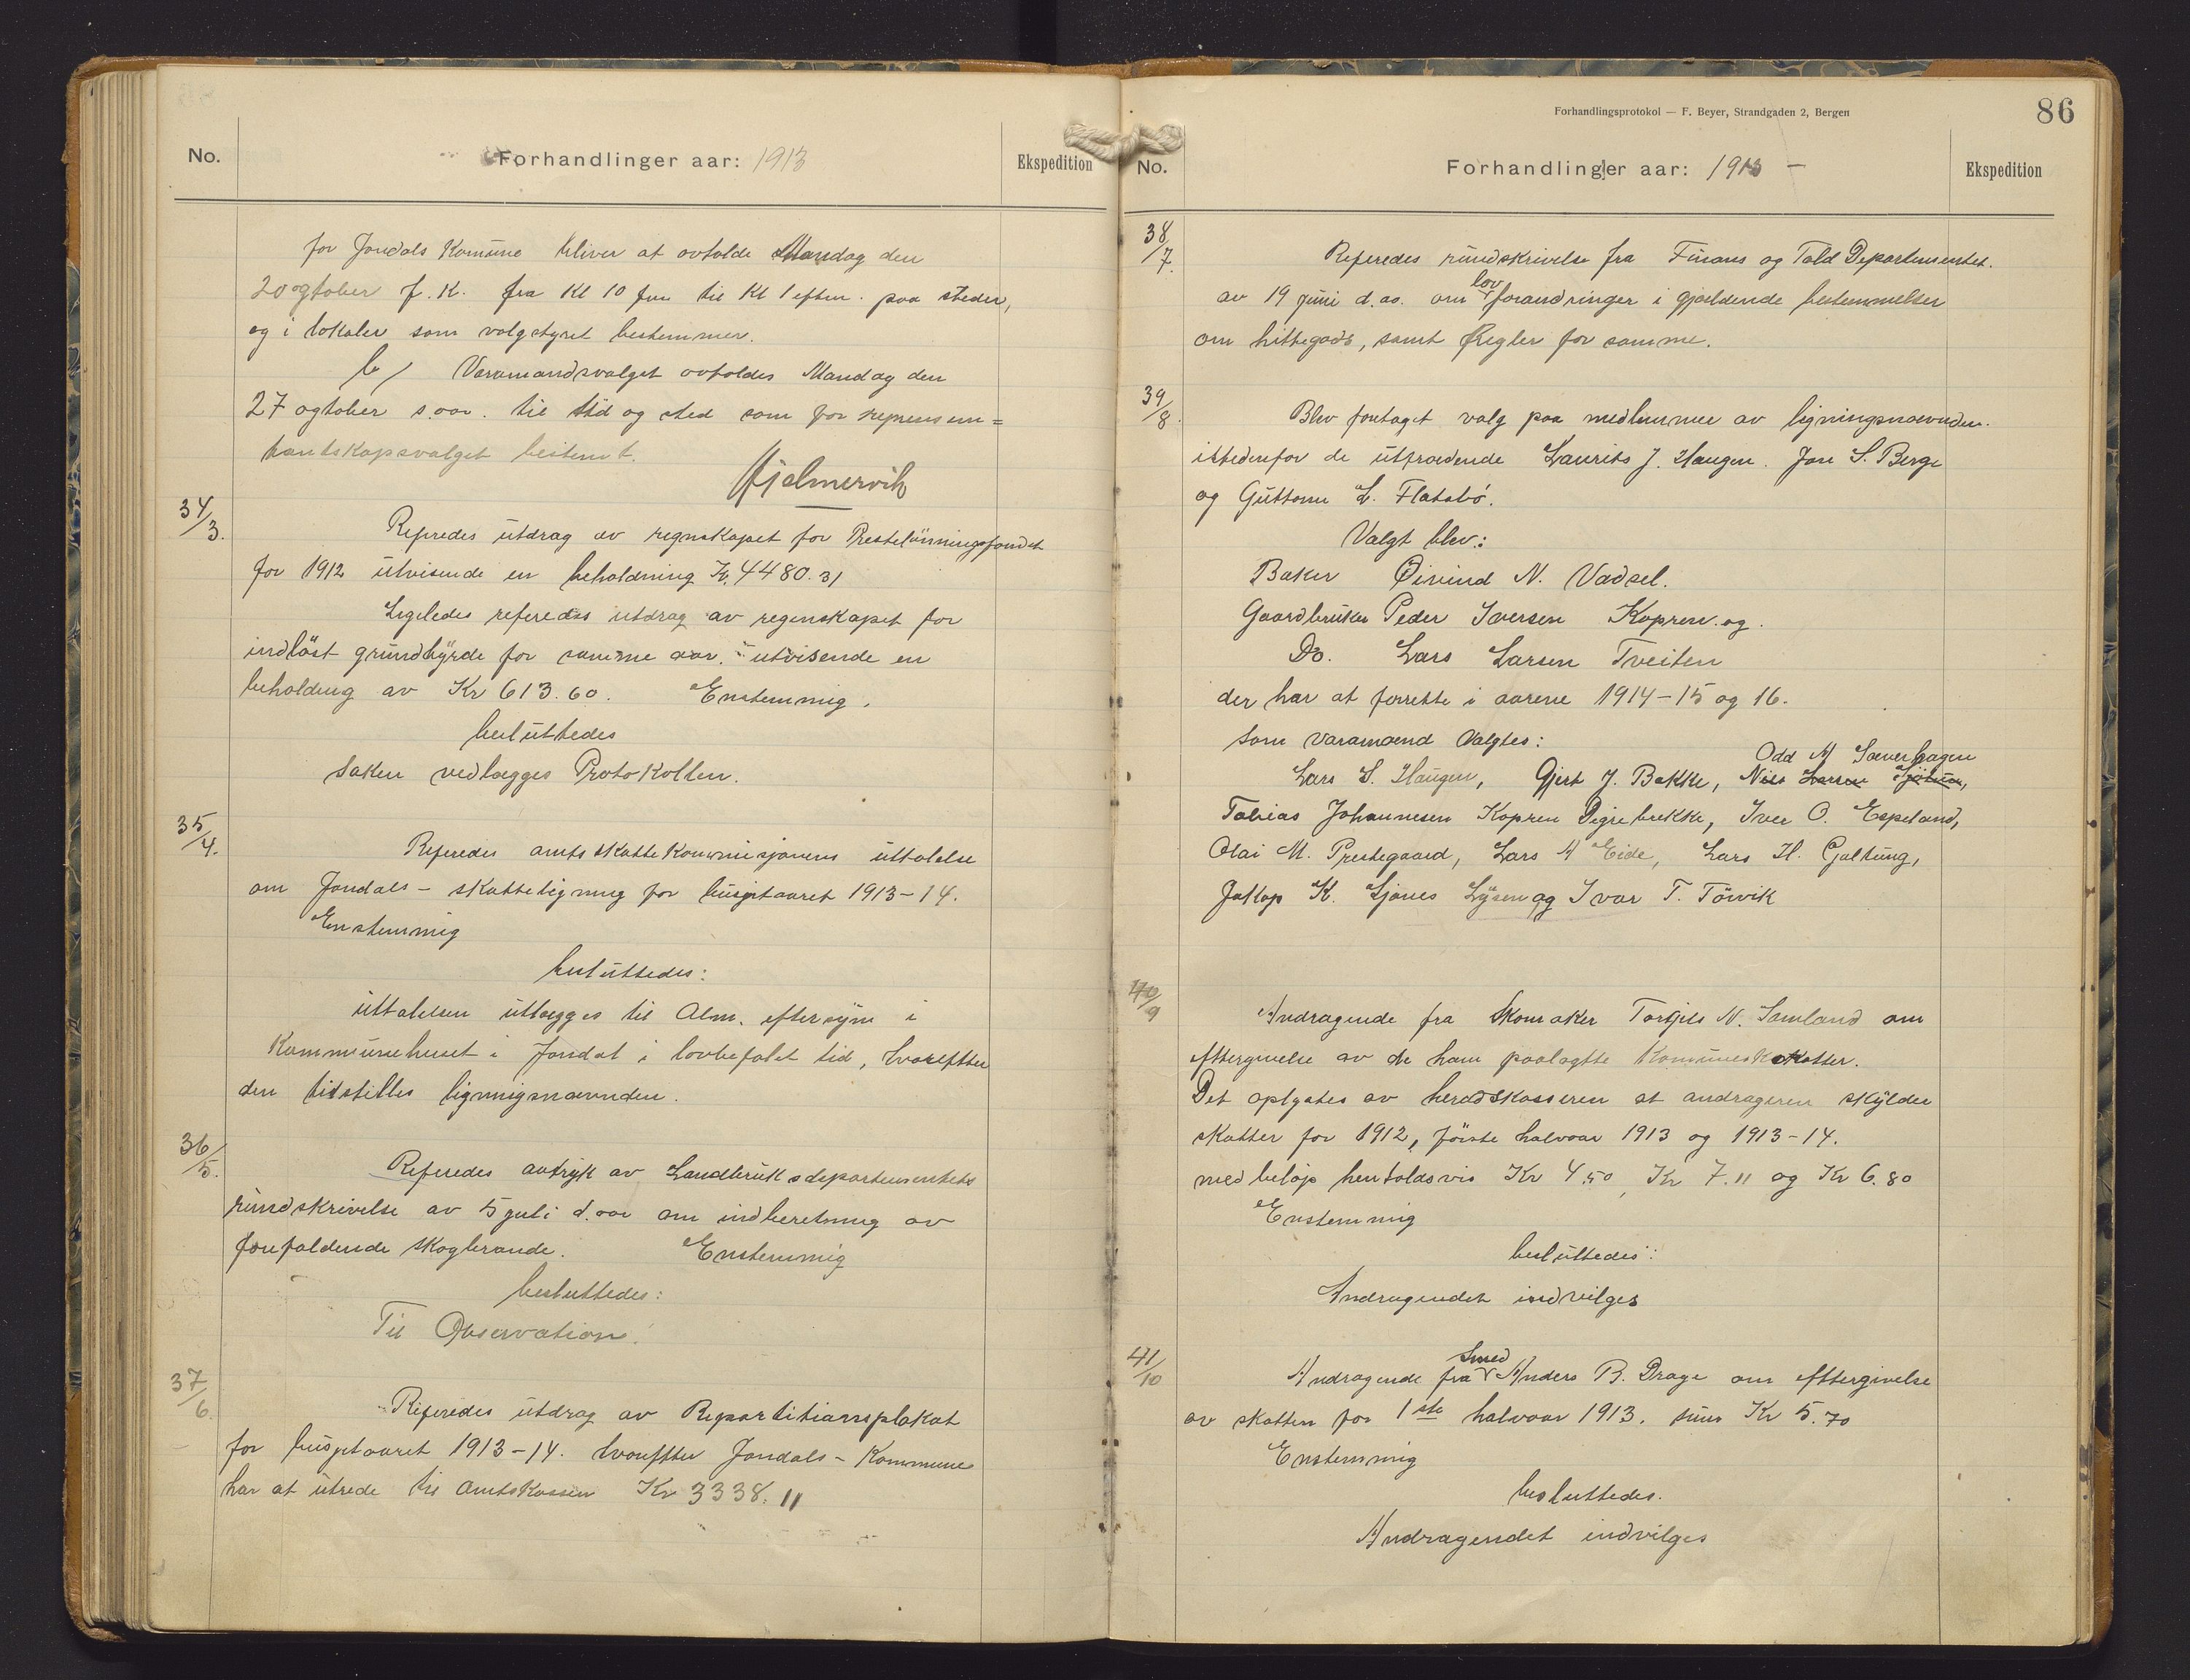 No.
Forhandlinger aar: 1913
Ekspedition
for Jondals Komune bliver at avholde Mandag den
20 ogtober f. K. fra Kl 10 fm til Kl 1 eften. paa steder,
og i lokaler som valgstyret bestemmer.
b/ Varamandsvalget avholdes Mandag den
27 ogtober s. aar. til tid og sted som for represen=
tantskapsvalget bestemt.
Hjelmervik
34/3.
Refredes utdrag av regnskapet for Prestelönningsfondet
for 1912 utvisende en beholdning Kr, 4480.31
Ligeledes referedes utdrag av regenskapet for
indlöst grundbyrde for samme aar. utvisende en
beholdng av Kr 613.60. Enstemmig,
besluttedes
Saken vedlægges Protokollen.
35/4.
Referedes amtsskattekommisjonens uttalelse
om Jondals - skatteligning for busjetaaret 1913-14.
Enstemmig
besluttedes:
uttalelsen utlægges til Alm. eftersyn i
Kommunehuset i Jondal i lovbefalet tid, hvorefter
den tilstilles ligningsnævnden.
36/5.
Referedes avtryk av Landbruksdepartementets
rundskrivelse av 5 juli d. aar om indberetning av
forefaldende skogbrande. Enstemmig
besluttedes:
Til Observation.
37/6.
Referedes utdrag av Repartitionsplakat
for busjetaaret 1913-14. hvorefter Jondals - Kommune
har at utrede til amtskassen Kr 3338.11
Forhandlingsprotokol — F. Beyer, Strandgaden 2, Bergen
86
No.
Forhandlinger aar: 1913 -
Ekspedition
38/7.
Referedes rundskrivelse fra Finans og Told Departementet.
lov
av 19 juni d. aa. om forandringer i gjældende bestemmelser
om hittegods, samt Regler for samme.
39/8.
Blev foretaget valg paa medlemmer av ligningsnævnden.
istedenfor de utrædende Laurits J. Haugen. Jon S. Berge
og Guttorm L. Flatabö.
Valgt blev:
Baker Øivind N. Vadsel.
Gaardbruker Peder Iversen Kopren. og.
Do. Lars Larsen Tveiten
der har at forrette i aarene 1914-15 og 16.
Som varamænd Valgtes:
Odd A Sæverhagen
Lars S. Haugen, Gjert J. Bakke, Nils Larsen Sjötun,
Tobias Johannesen Kopren Digrebrekke, Iver O. Espeland,
Olai M. Prestegaard, Lars A Eide, Lars H. Galtung,
Jakop K. Ljones Lysen og Ivar T. Törvik
40/9
Andragende fra Skomaker Torgils N. Samland om
eftergivelse av de ham paalagtte Komuneskatter.
Det oplystes av heredskasseren at andrageren skylder
skatter for 1912, förste halvaar 1913 og 1913-14.
med belöp henholdsvis Kr 4.50, Kr 7.11 og Kr 6.80
Enstemmig
besluttedes:
Andragendet indvilges
41/10
Smed
Andragende fra Anders B. Drage om eftergivelse
av skatten for 1ste halvaar 1913. Kr 5.70
Enstemmig
besluttedes.
Andragendet indvilges